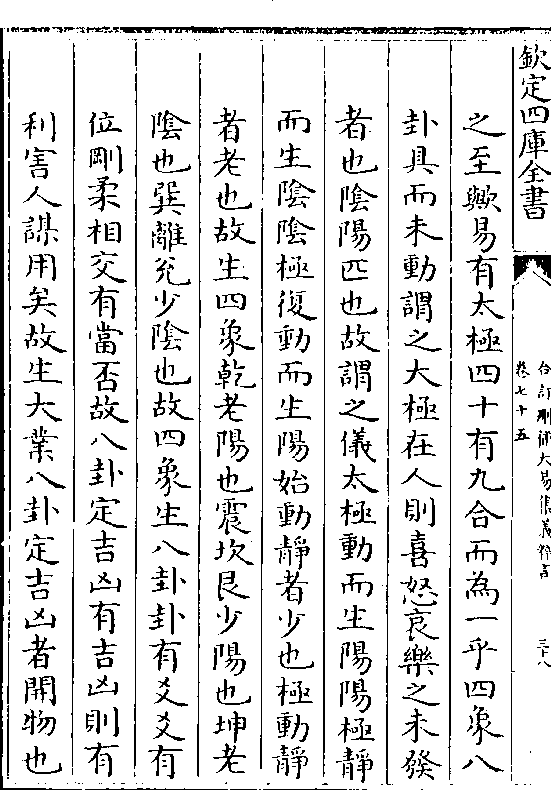 欽定四庫全書
合訂刪補大易集義粹言
卷七十五
三十八
之至歟易有太極四十有九合而為一乎四象八
卦具而未動謂之大極在人則喜怒哀樂之未發
者也陰陽匹也故謂之儀太極動而生陽陽極靜
而生陰陰極復動而生陽始動靜者少也極動靜
者老也故生四象乾老陽也震坎艮少陽也坤老
陰也巽離兊少陰也故四象生八卦卦有爻爻有
位剛柔相交有當否故八卦定吉凶有吉凶則有
利害人謀用矣故生大業八卦定吉凶者開物也